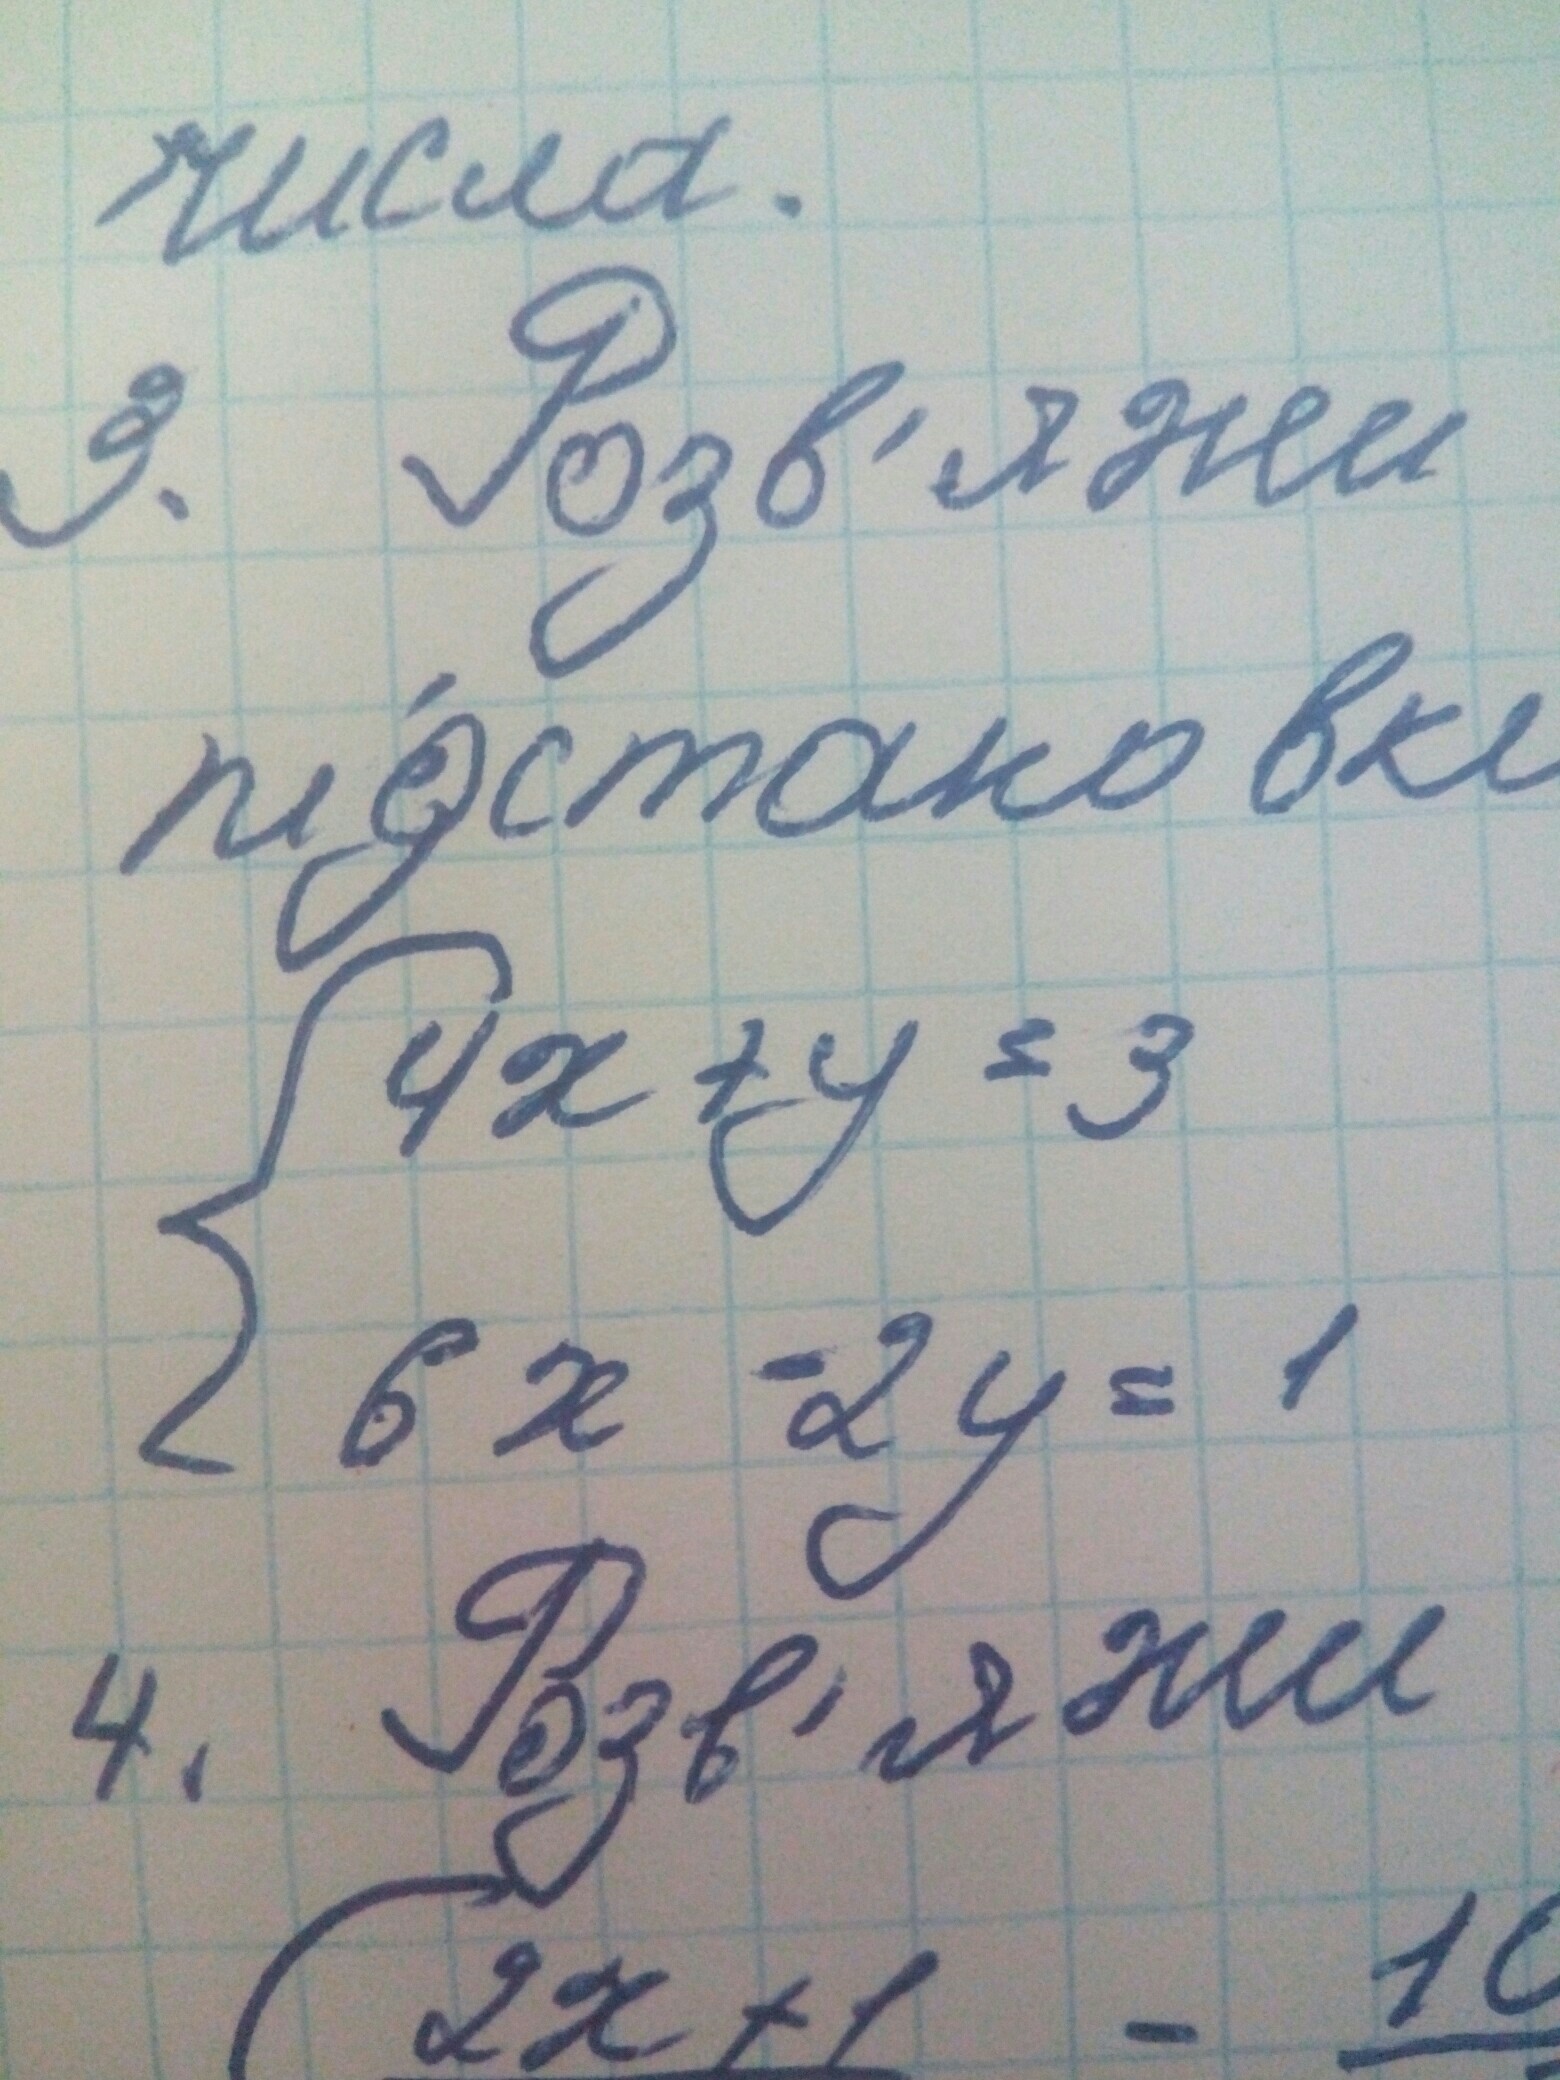 числа.
3. Розв'яжи
підстановки
{ 4x + y = 3
6x - 2y = 1
4. Розв'яжи
2x + 1 - 10